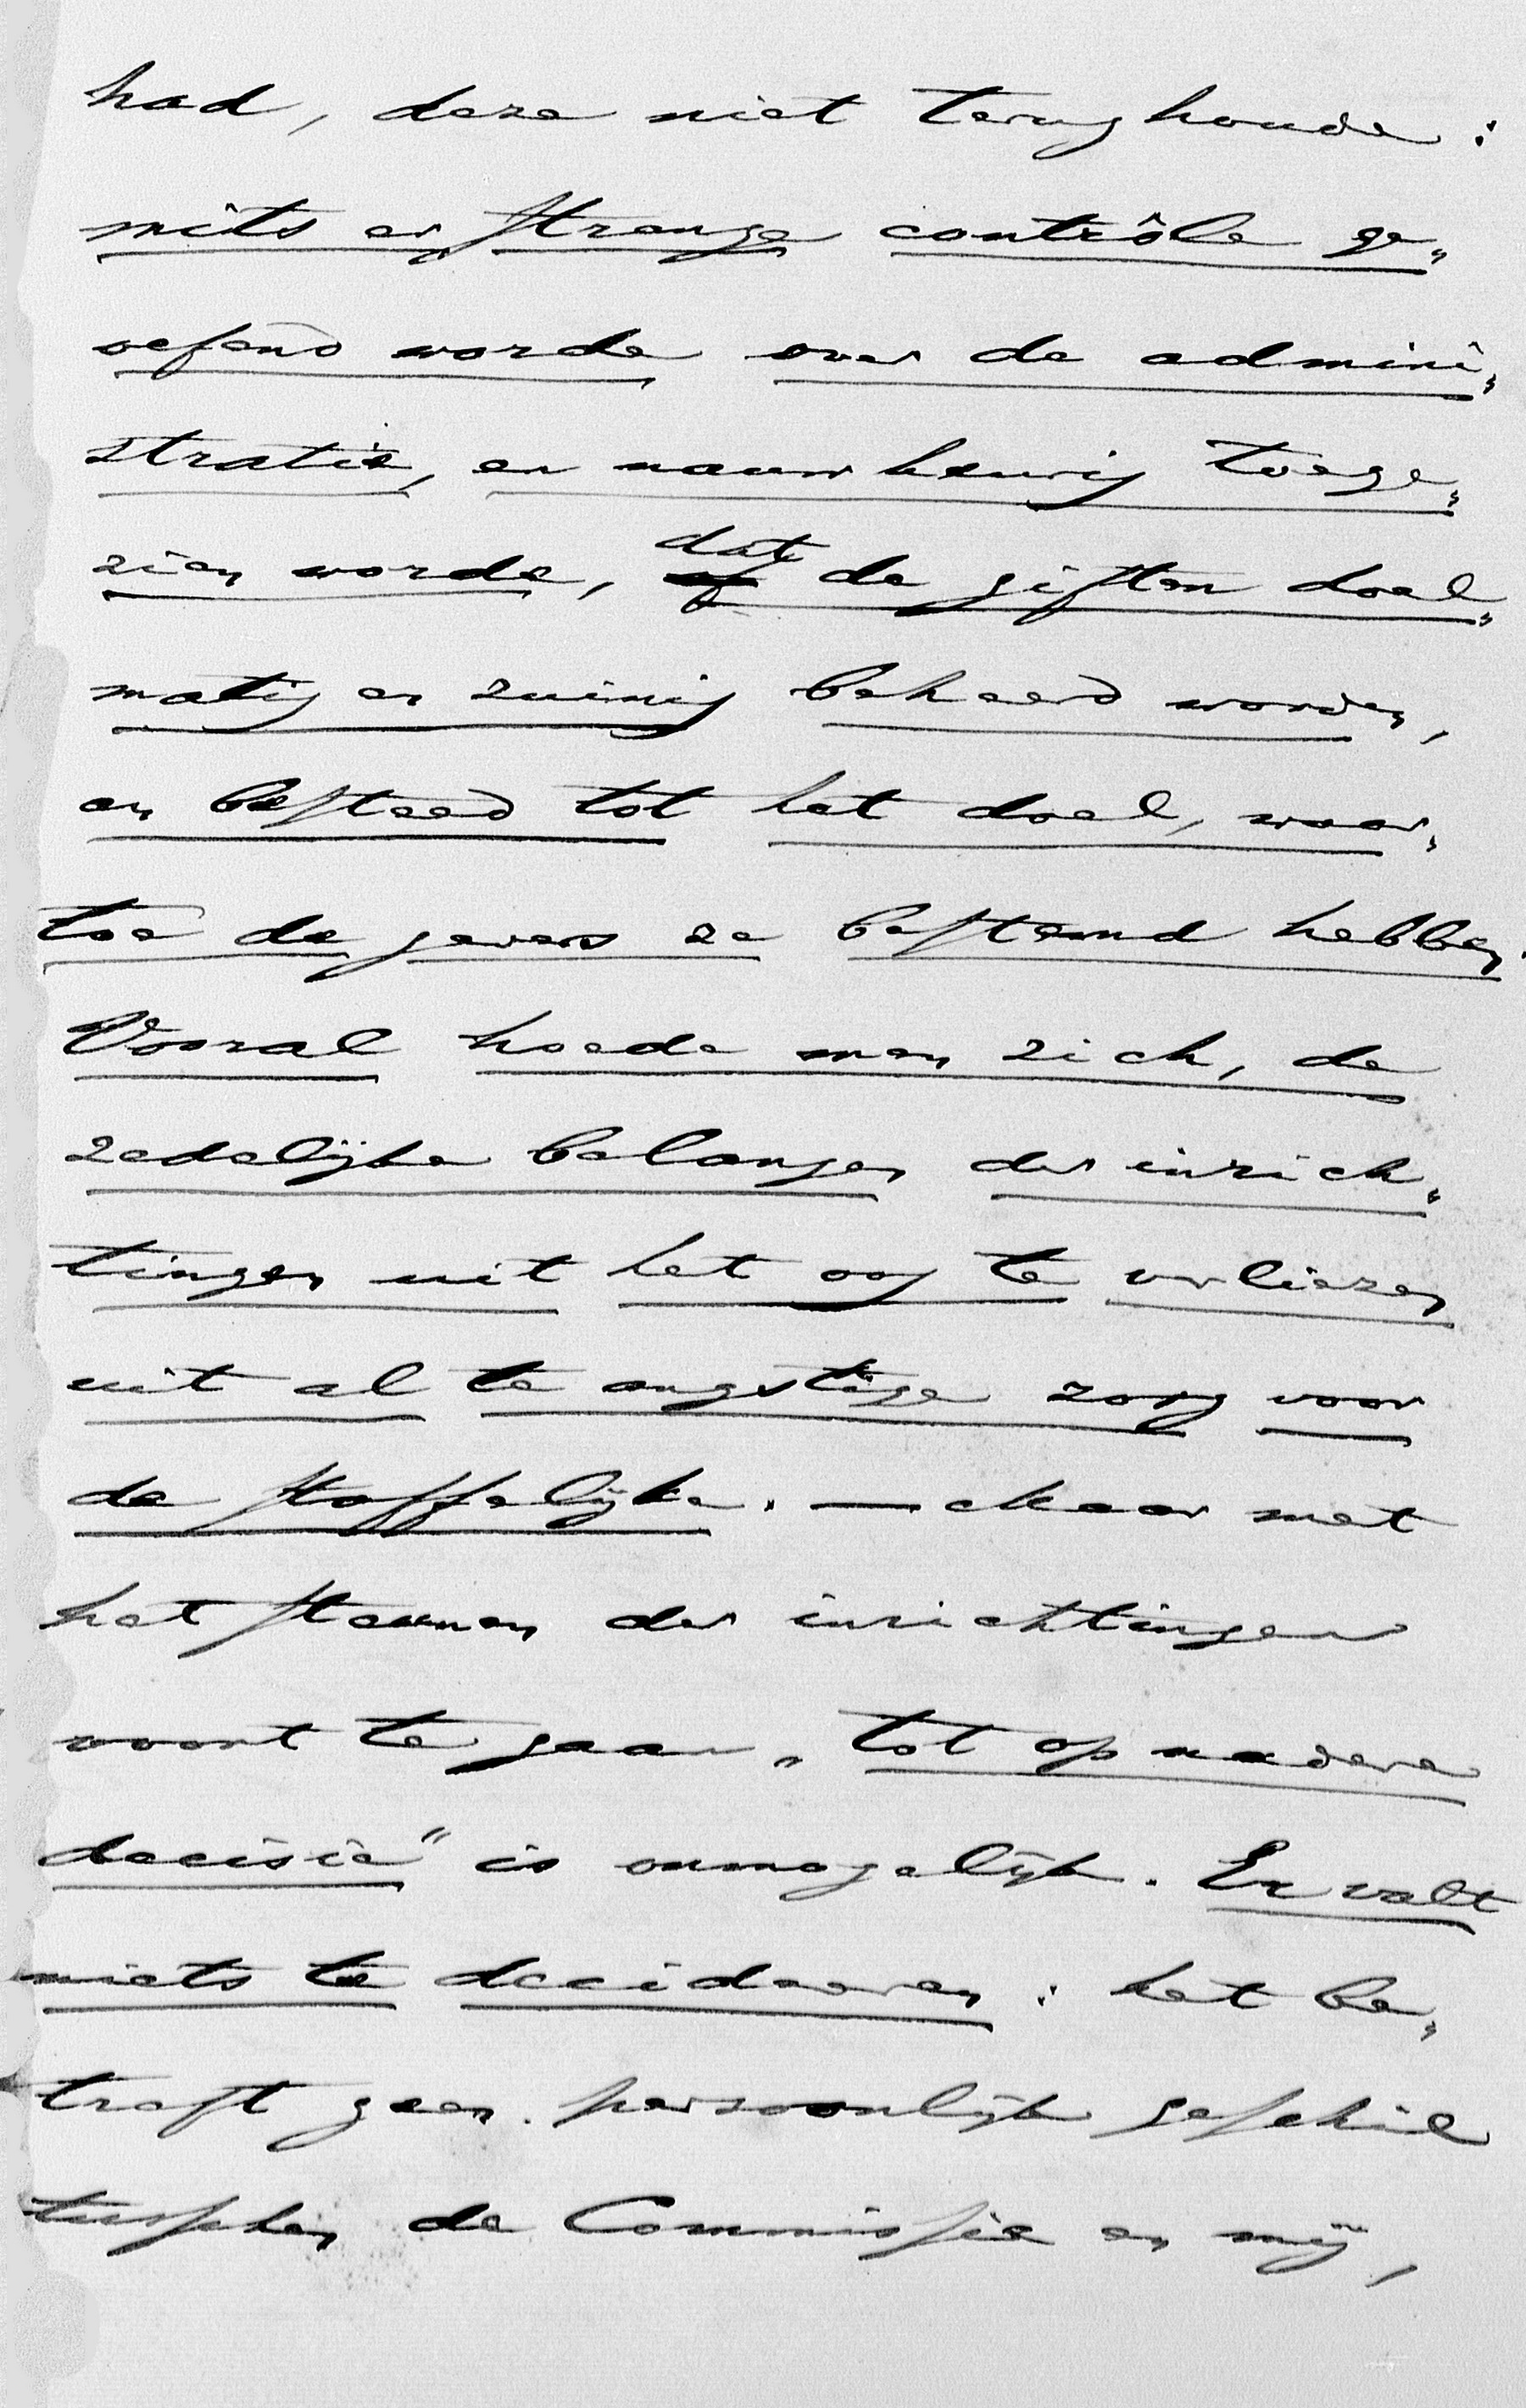 had, deze niet terughoude:
mits er strenge contrôle ge„
oefend worde over de admini„
stratie, en naauwkeurig toege„
zien worde, dat de giften doel„
matig en zuinig beheerd worden,
en besteed tot het doel, waar„
toe de gevers ze bestemd hebben.
Vooral hoede men zich, de
zedelijke belangen der inrich„
tingen uit het oog te verliezen
uit al te angstige zorg voor
de stoffelijke. — Maar met
het steunen der inrichtingen
voort te gaan „tot op nadere
decisie" is onmogelijk. Er valt
niets te decideeren: het be„
treft geen persoonlijk geschil
tusschen de Commissie en mij,